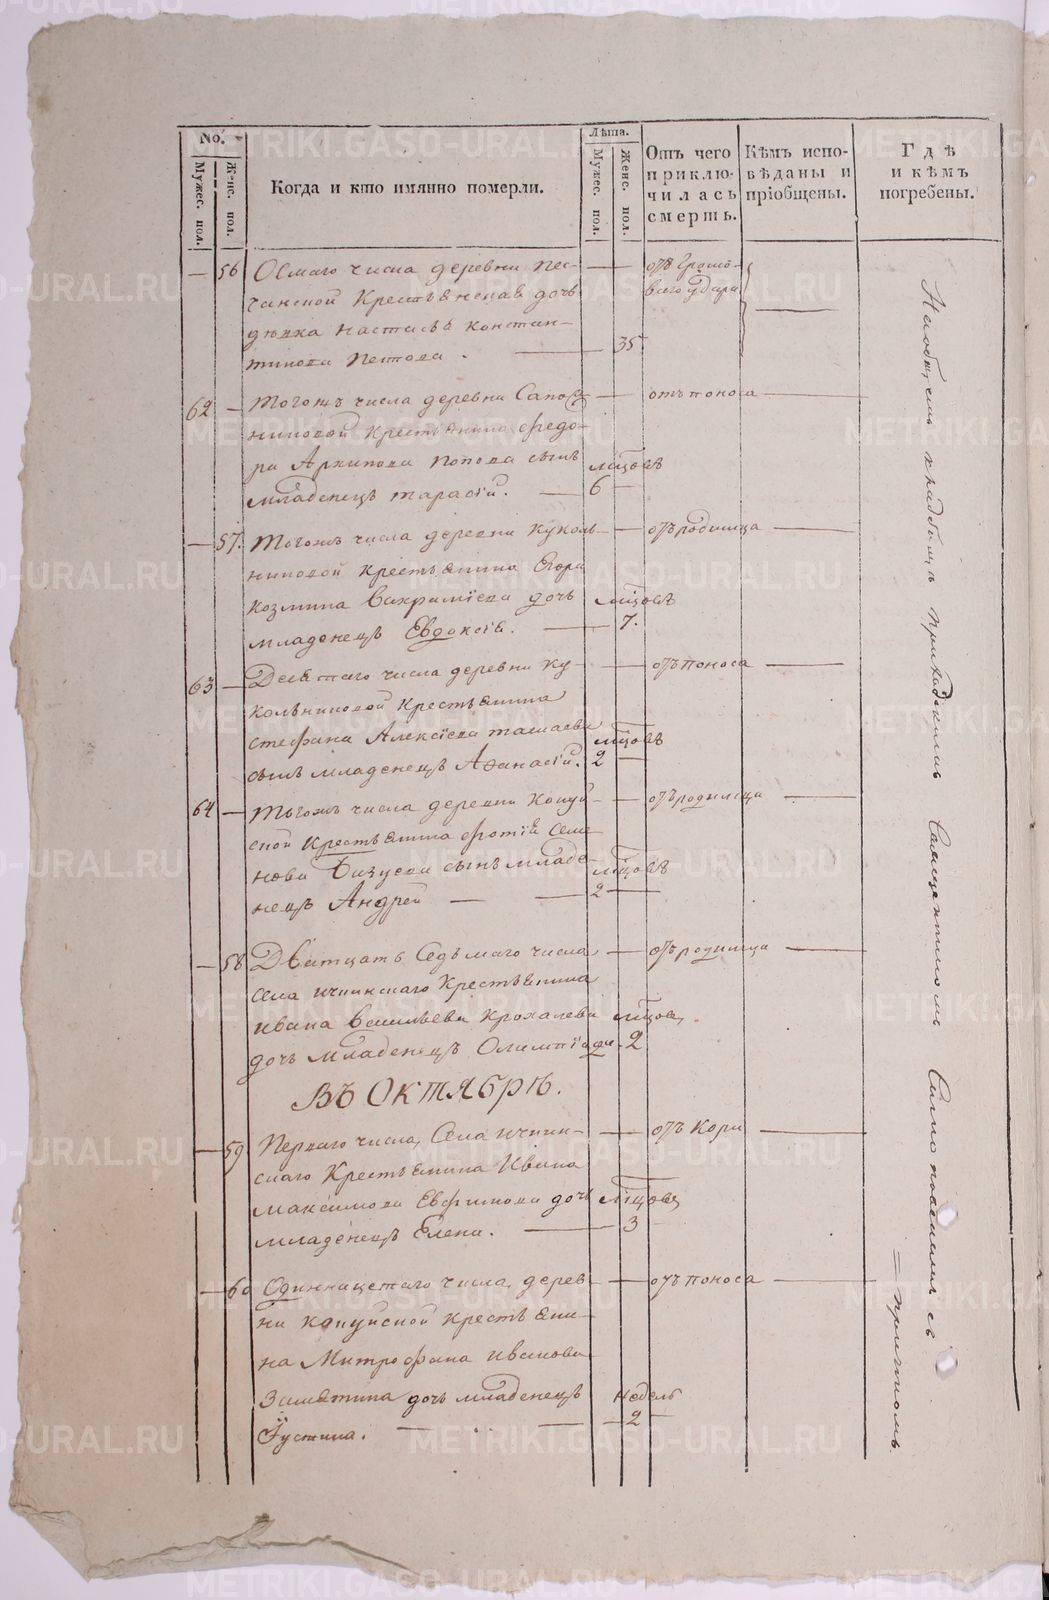 No.
Мужес. пол.
Женс. пол.
Когда и кто имянно померли.
Лѣта.
Мужес. пол.
Женс. пол.
Отъ чего приключилась смерть.
Кѣмъ исповѣданы и пріобщены.
Гдѣ и кѣмъ погребены.
56 Осмаго числа деревни Пес-
чанской Крестьянская дочь
дѣвка Настасья Констан-
тинова Пектова. 35
отъ Громо-
ваго удара
62 Тогожъ числа деревни Сапож-
никовой Крестьянина Федо-
ра Архипова Попова сынъ
младенецъ Тарасій. мѣсяцовъ 6
отъ поноса
57. Тогожъ числа деревни Куколь-
никовой крестьянина Егора
Козмина Вахрамѣева дочь
младенецъ Евдокія. мѣсяцовъ 7.
отъ родимца
63 Десятаго числа деревни Ку-
кольниковой Крестьянина
Стефана Алексѣева Ташаева
сынъ младенецъ Афанасій. мѣсяцовъ 2
отъ поноса
64 Тогожъ числа деревни Копуй-
ской крестьянина Фотія Семе-
нова сынъ младе-
нецъ Андрей мѣсяцовъ 2
отъ родимца
58 Дватцать Седьмаго числа
села Ичкинскаго Крестьянина
Ивана Васильева Крохалева
дочь младенецъ Олимпіада. мѣсяцов. 2
отъ родимца
Въ Октябрѣ.
59 Перваго числа, Села Ичкин-
скаго Крестьянина Ивана
Максимова Евфимова дочь
младенецъ Елена. мѣсяцовъ 3
отъ Кори
60 Одиннацетаго числа, дерев-
ни Капуйской Крестьяни-
на Митрофана Иванова
Замятина дочь младенецъ
Іустина. недель 2
отъ Поноса
На общемъ кладбищѣ приходскимъ Священникомъ съ
причтомъ.
METRIKI.GASO-URAL.RU